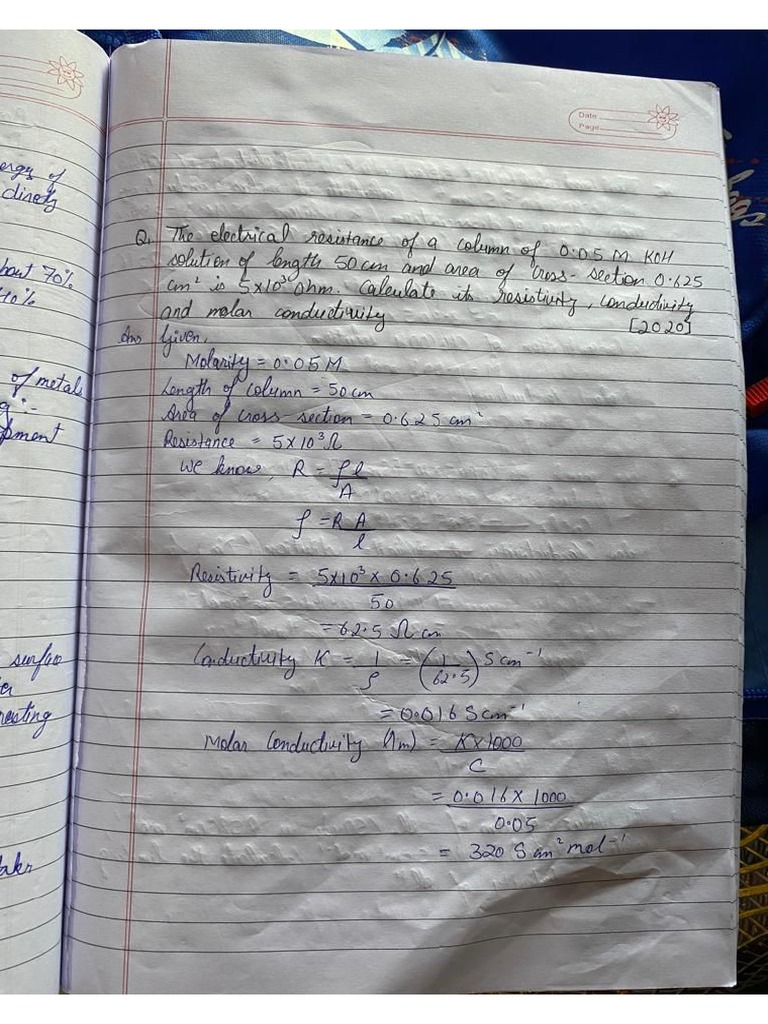 ergy of
directly
bout 70%
40%
of metals
g :-
pment
surface
er
resting
Date
Page
Q. The electrical resistance of a column of 0.05 M KOH
solution of length 50 cm and area of cross-section 0.625
cm² is 5x10³ ohm. Calculate its resistivity, conductivity
and molar conductivity [2020]
Ans Given,
Molarity = 0.05 M
Length of column = 50 cm
Area of cross-section = 0.625 cm²
Resistance = 5x10³ Ω
We know, R = ρl/A
ρ = R A/l
Resistivity = 5x10³ x 0.625/50
= 62.5 Ω cm
Conductivity K = 1/ρ = (1/62.5) S cm⁻¹
= 0.016 S cm⁻¹
Molar Conductivity (Λm) = K x 1000/C
= 0.016 x 1000/0.05
= 320 S cm² mol⁻¹